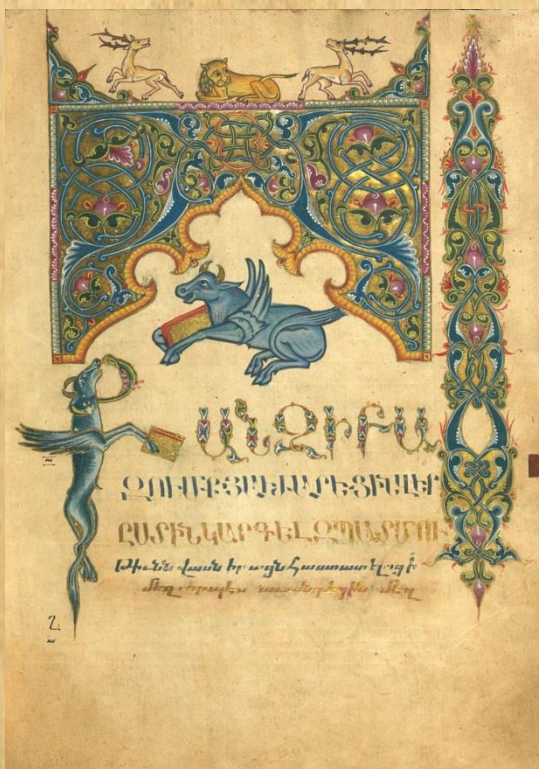 ՔԱՆԶԻ ԲԱ
ԶՈՒՄՔ ՅԱՒԺԱՐԵՑԻՆ ՎԵՐ
ԸՍՏԻՆ ԿԱՐԳԵԼ ԶՊԱՏՄՈՒ
թիւնն վասն իրացն հաստատելոց ի
մեզ որպէս աւանդեցին մեզ